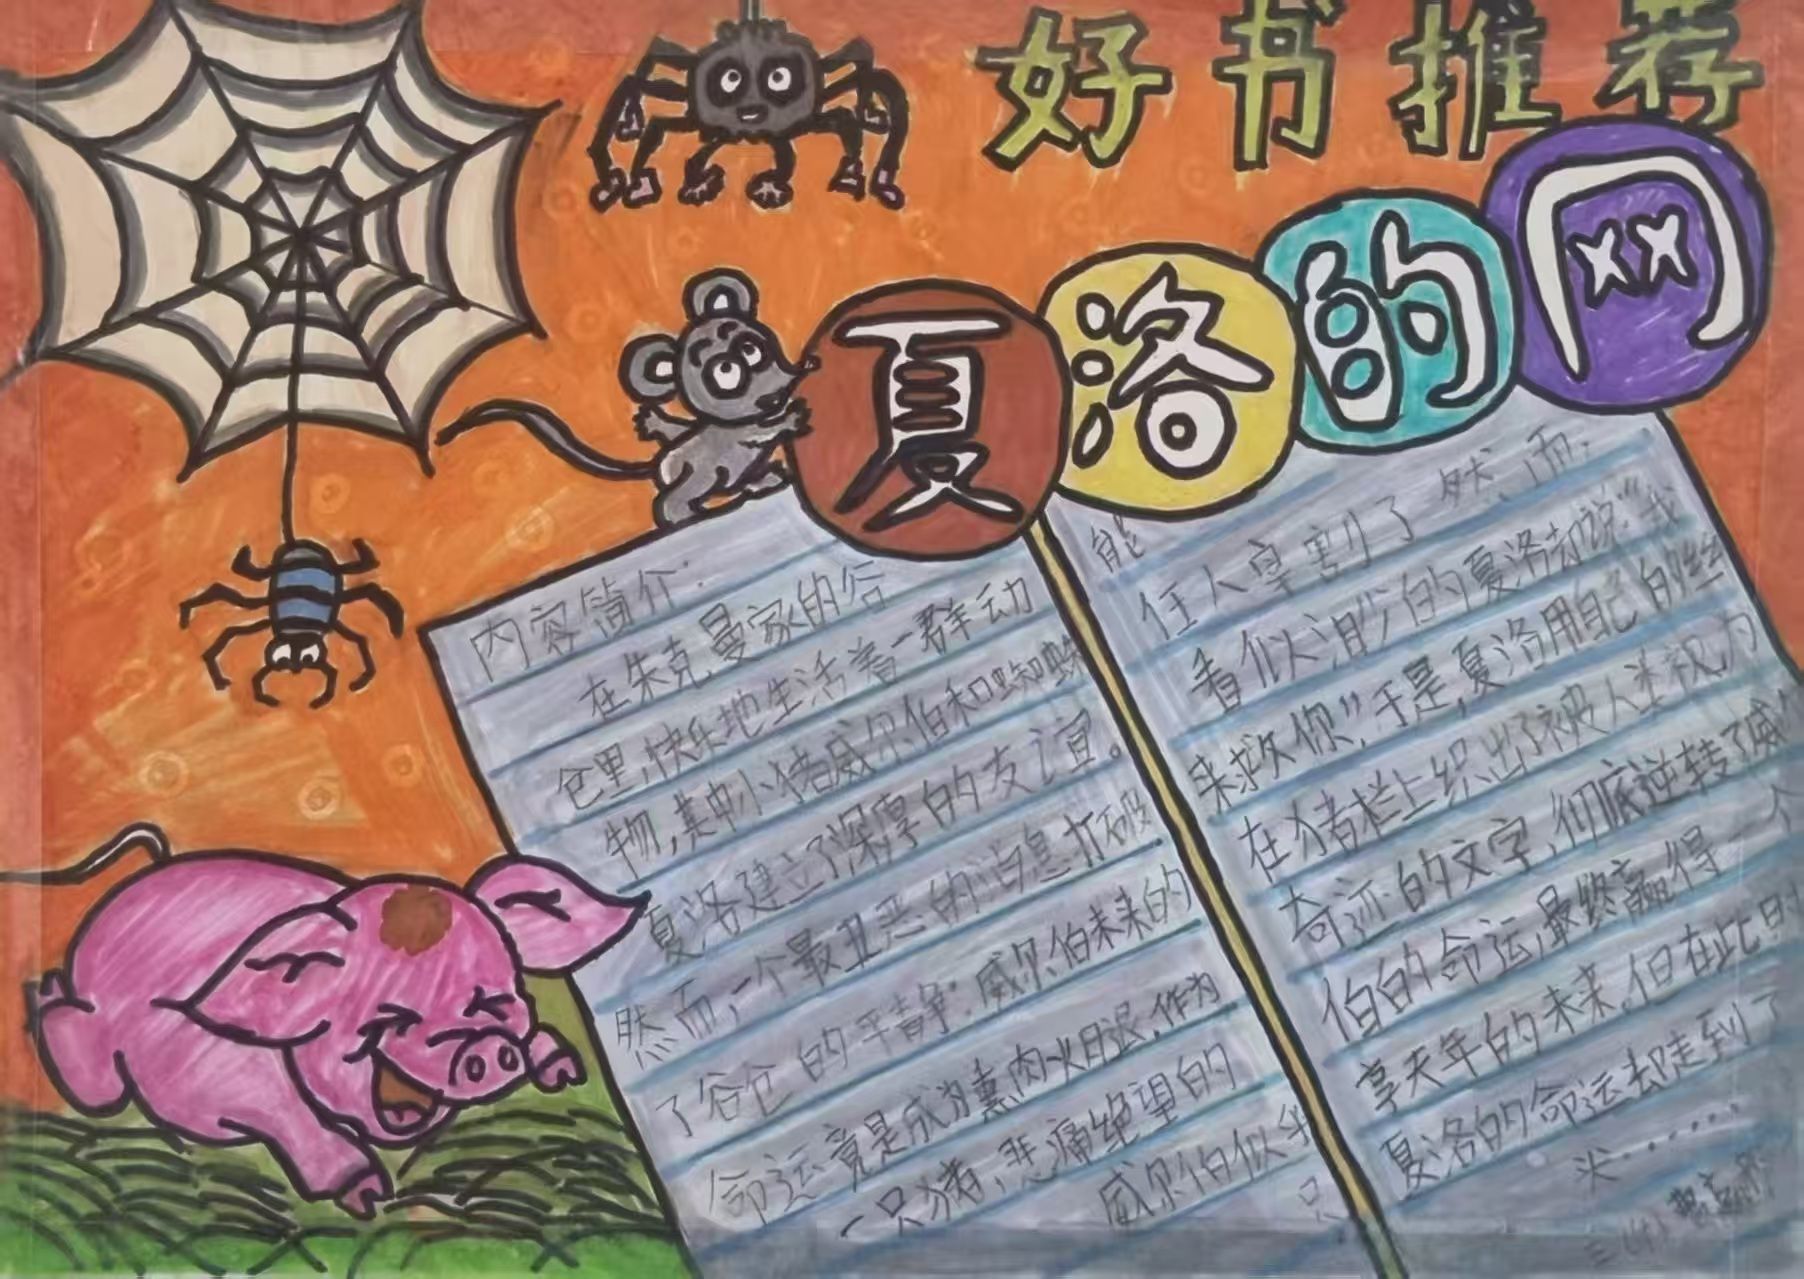 好书推荐
夏洛的网
内容简介:
在朱克曼家的谷
仓里,快乐地生活着一群动
物,其中小猪威尔伯和蜘蛛
夏洛建立了深厚的友谊。
然而,一个最丑恶的消息打破
了谷仓的平静:威尔伯未来的
命运竟是成为熏肉火腿,作为
一只猪,悲痛绝望的
威尔伯似乎只
能
任人宰割了然而,
看似渺小的夏洛却说:“我
来救你”于是,夏洛用自己的丝
在猪栏上织出了被人类视为
奇迹的文字,彻底逆转了威尔
伯的命运,最终赢得一个
享天年的未来,但在此时
夏洛的命运却走到了
尖……